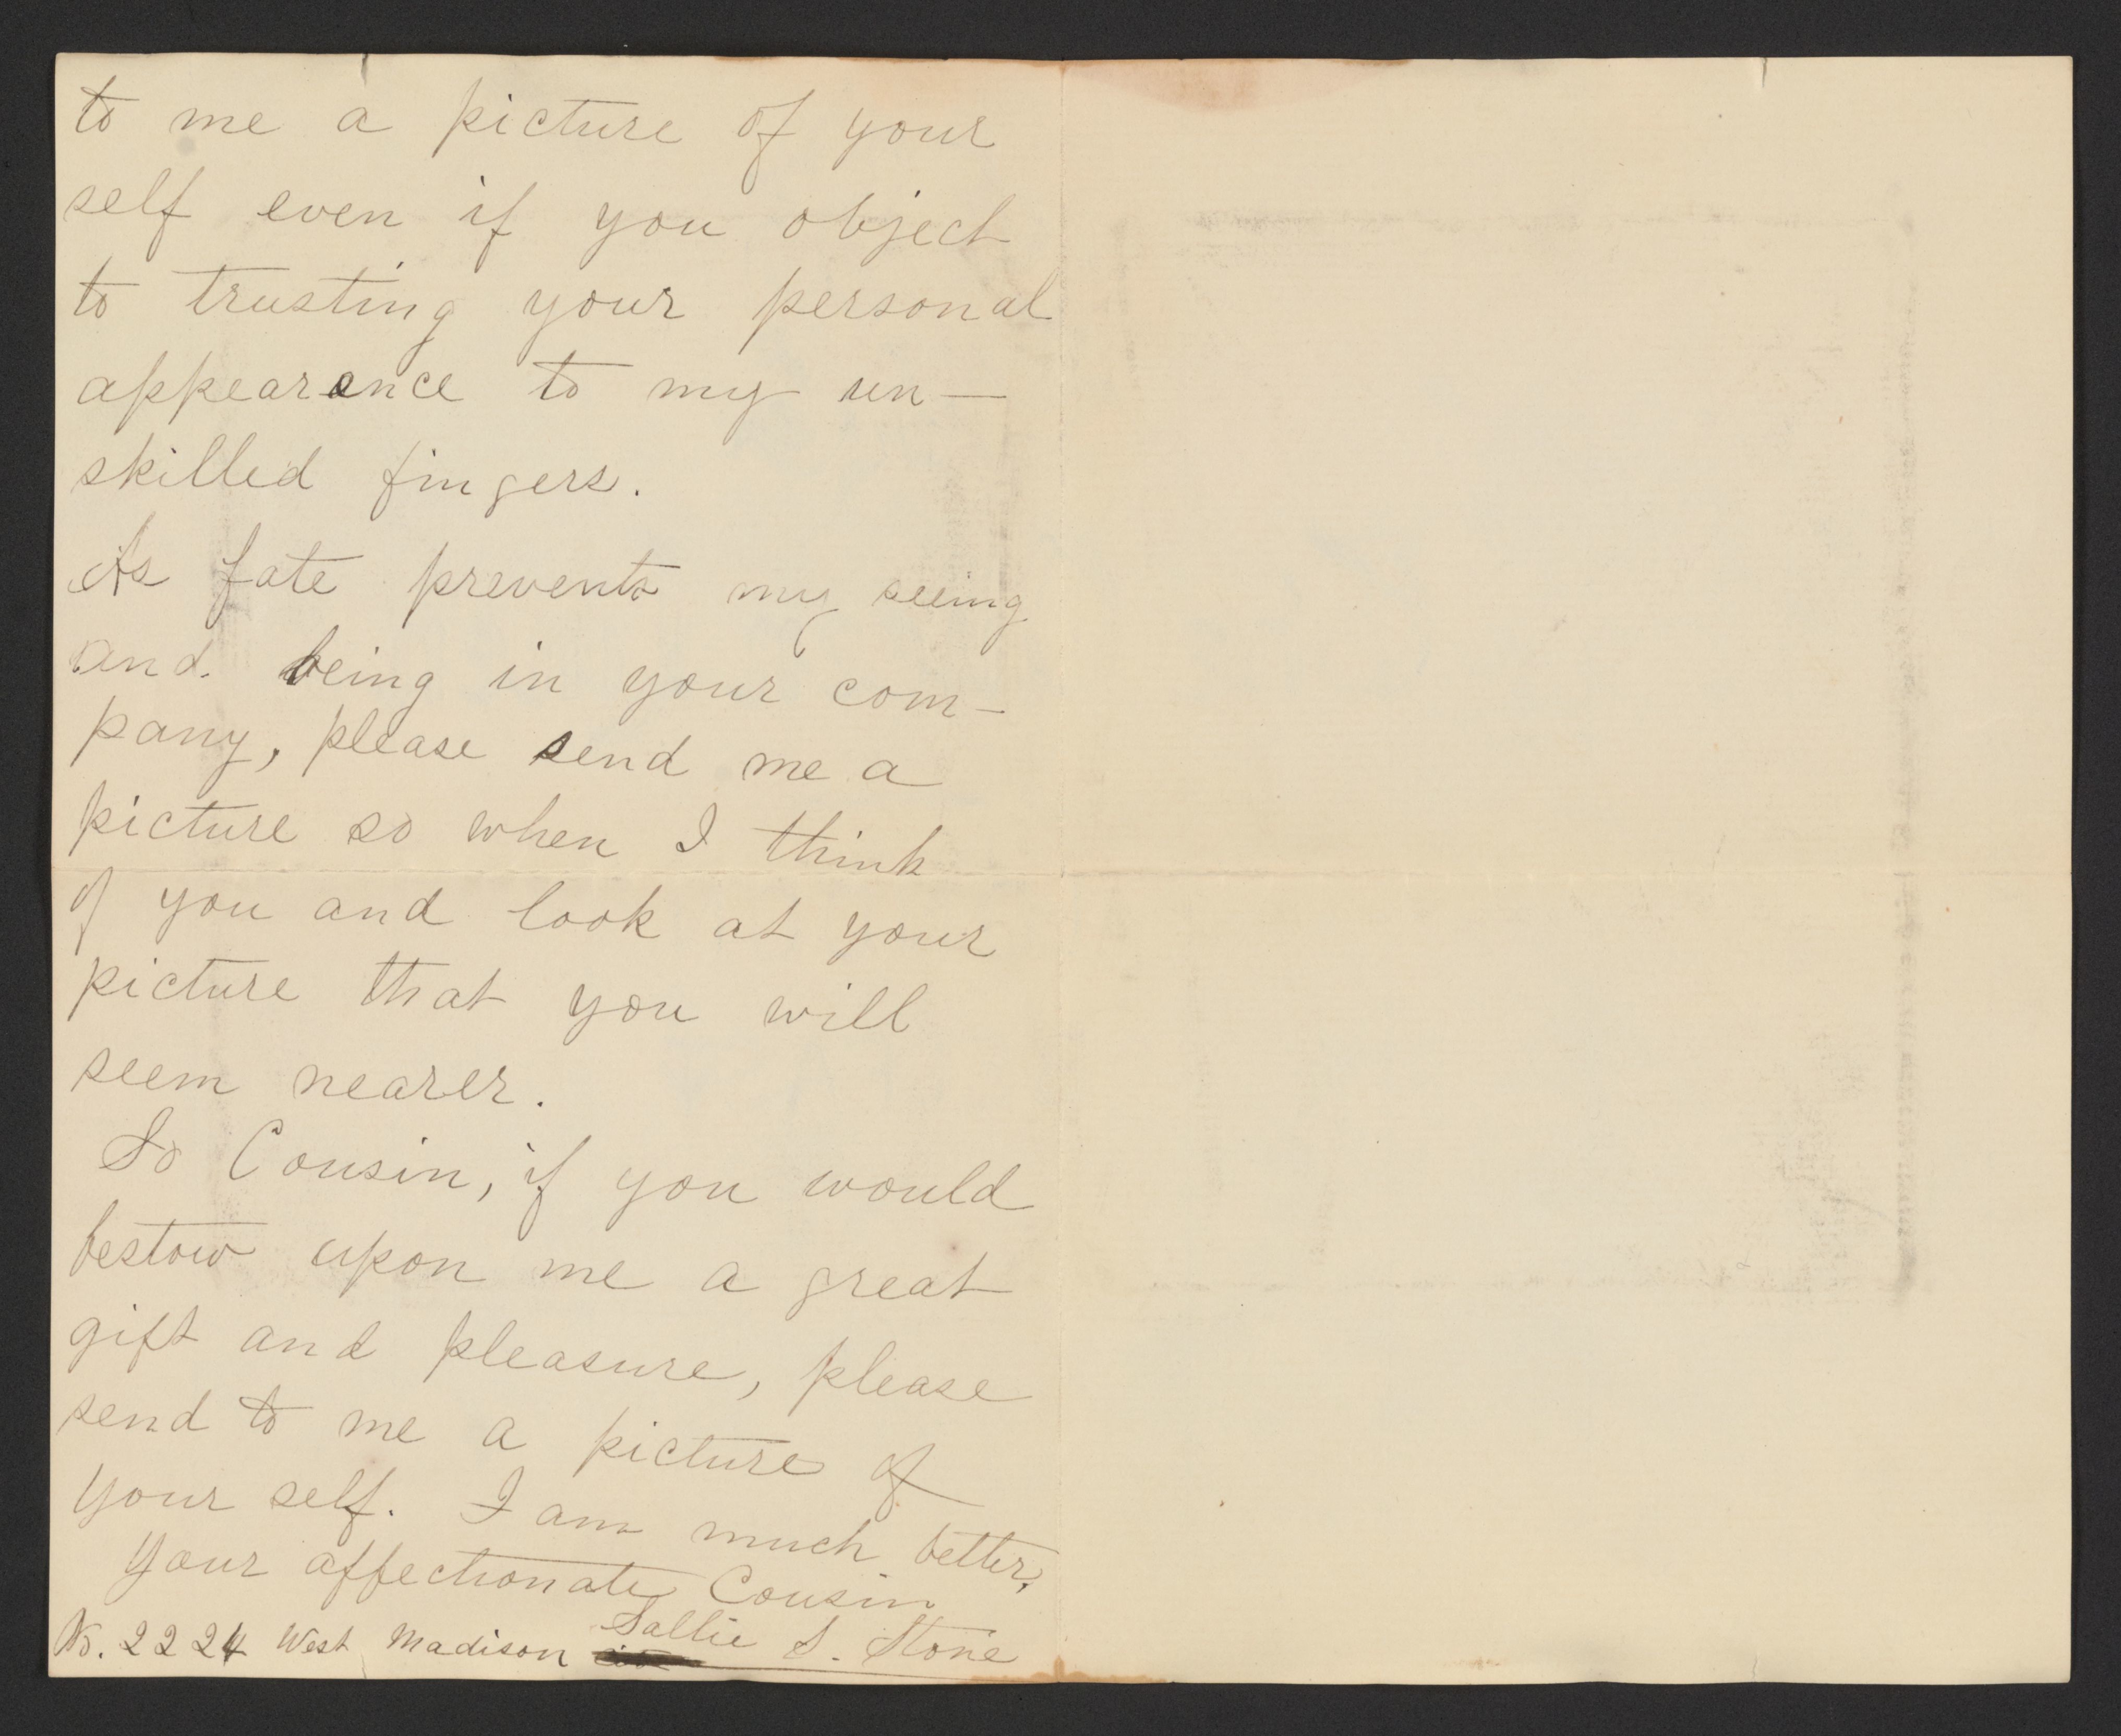 to me a picture of your
self even if you object
to trusting your personal
appearance to my un-
skilled fingers.
As fate prevents my seeing
and being in your com-
pany, please send me a
picture so when I think
of you and look at your
picture that you will
seem nearer.
So Cousin, if you would
bestow upon me a great
gift and pleasure, please
send to me a picture of
your self. I am much better,
Your affectionate Cousin
Sallie S. Stone
No. 2224 West Madison